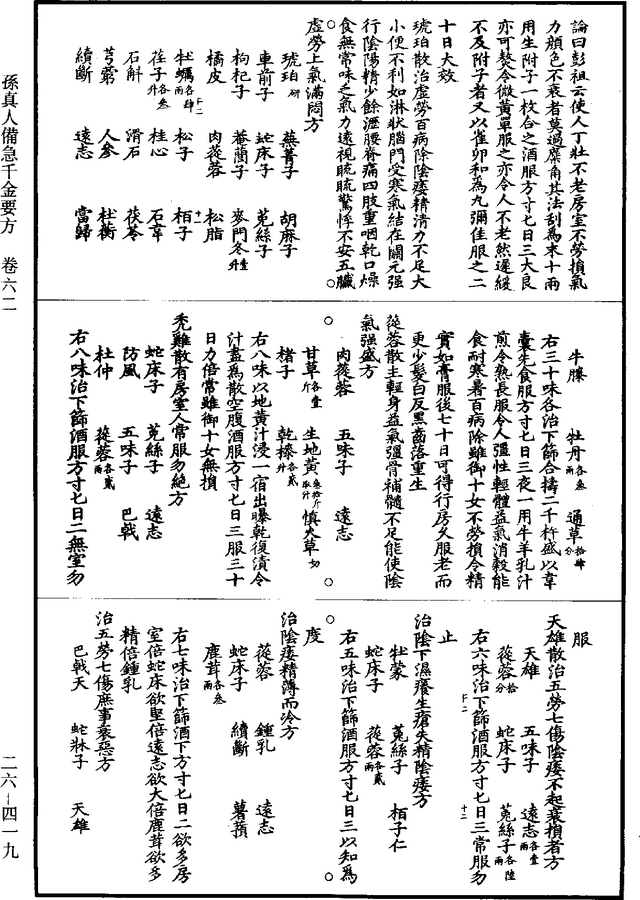 論曰彭祖云使人丁壯不老房室不勞損氣
力顏色不衰者莫過麋角其法刮為末十兩
用生附子一枚合之酒服方寸匕日三大良
亦可熬令微黃單服之亦令人不老然遲緩
不及附子者又以雀卵和為丸彌佳服之二
十日大效
琥珀散治虛勞百病除陰痿精清力不足大
小便不利如淋狀腦門受寒氣結在關元强
行陰陽精少餘瀝腰脊痛四肢重咽乾口燥
食無常味乏氣力遠視䀮䀮驚悸不安五臟
虛勞上氣滿悶方
琥珀研 蕪菁子 胡麻子
車前子 蛇床子 菟絲子
枸杞子 菴䕡子 麥門冬各壹升
橘皮 肉蓯蓉 松脂
牡蠣各肆兩 松子 栢子
荏子各叁升 桂心 石韋
石斛 滑石 茯苓
芎藭 人參 杜衡
續斷 遠志 當歸
牛膝 牡丹各叁兩 通草拾肆分
右三十味各治下篩合擣二千杵盛以韋
囊先食服方寸匕日三夜一用牛羊乳汁
煎令熟長服令人强性輕體益氣消穀能
食耐寒暑百病除雖御十女不勞損令精
實如膏服後七十日可得行房久服老而
更少髮白反黑齒落重生
蓯蓉散主輕身益氣强骨補髓不足能使陰
氣强盛方
肉蓯蓉 五味子 遠志
甘草各壹斤 生地黃叁拾斤取汁 慎火草切
楮子 乾㯶各貳升
右八味以地黃汁浸一宿出曝乾復漬令
汁盡為散空腹酒服方寸匕日三服三十
日力倍常雖御十女無損
禿雞散有房室人常服勿絕方
蛇床子 菟絲子 遠志
防風 五味子 巴戟
杜仲 蓯蓉各貳兩
右八味治下篩酒服方寸匕日二無室勿
服
天雄散治五勞七傷陰痿不起衰損者方
天雄 五味子 遠志各壹兩
蓯蓉拾分 蛇床子 菟絲子各陸兩
右六味治下篩酒服方寸匕日三常服勿
止
治陰下濕癢生瘡失精陰痿方
牡蒙 菟絲子 栢子仁
蛇床子 蓯蓉各貳兩
右五味治下篩酒服方寸匕日三以知為
度
治陰痿精薄而冷方
蓯蓉 鍾乳 遠志
蛇床子 續斷 薯蕷
鹿茸各叁兩
右七味治下篩酒下方寸匕日二欲多房
室倍蛇床欲堅倍遠志欲大倍鹿茸欲多
精倍鍾乳
治五勞七傷庶事衰惡方
巴戟天 蛇牀子 天雄
孫真人備急千金要方 卷六二
二六-四一九